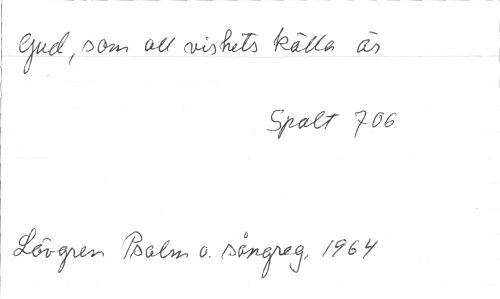 Gud, som all vishets källa är
Spalt 706
Lövgren Psalm o. sångreg. 1964